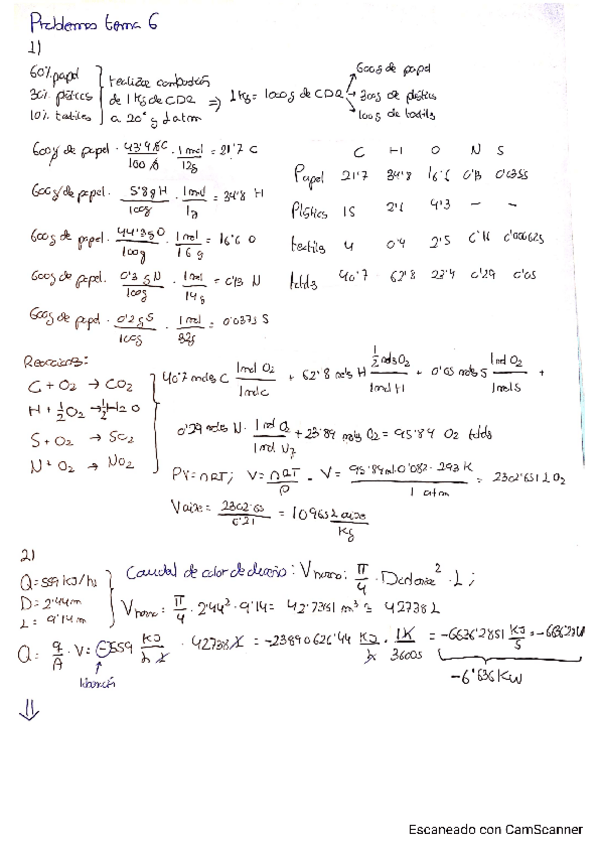 Problemas tema 6
1)
60% papel
30% plásticos
10% textiles
realizar combustión
de 1 Kg de CDR
a 20° y 1 atm
⇒ 1 Kg = 1000 g de CDR
600 g de papel
300 g de plásticos
100 g de textiles
600 g de papel · 43'4 g C / 100 g · 1 mol / 12 g = 21'7 C
600 g de papel · 5'8 g H / 100 g · 1 mol / 1 g = 34'8 H
600 g de papel · 44'3 g O / 100 g · 1 mol / 16 g = 16'6 O
600 g de papel · 0'3 g N / 100 g · 1 mol / 14 g = 0'13 N
600 g de papel · 0'2 g S / 100 g · 1 mol / 32 g = 0'0375 S
C H O N S
Papel 21'7 34'8 16'6 0'13
Plásticos 15 4'3 - -
textiles 4 0'4 2'5 0'16 0'000625
totales 40'7 62'8 23'4 0'29 0'05
Reacciones:
C + O2 → CO2
H + 1/2 O2 → 1/2 H2O
S + O2 → SO2
N + O2 → NO2
40'7 moles C 1 mol O2 / 1 mol C + 62'8 moles H 1/2 mol O2 / 1 mol H + 0'05 moles S 1 mol O2 / 1 mol S +
0'29 moles N · 1 mol O2 / 1 mol + 23'84 moles O2 = 95'84 O2
PV = nRT; V = nRT / P = V = 95'84 · 0'082 · 293 K / 1 atm = 2302'651 L O2
V aire = 2302'65 / 0'21 = 10965 L aire / Kg
2)
Q = 559 KJ/h
D = 2'44 m
L = 9'14 m
Caudal de calor de diseño: V horno: π/4 · D² · L;
V horno = π/4 · 2'44² · 9'14 = 42'7351 m³ ≈ 42738 L
Q = q/A · V = -559 KJ / h · 42738 = -23890626'44 KJ / h · 1h / 3600 s = -6636'2851 KJ / s
-6'636 KW
Escaneado con CamScanner